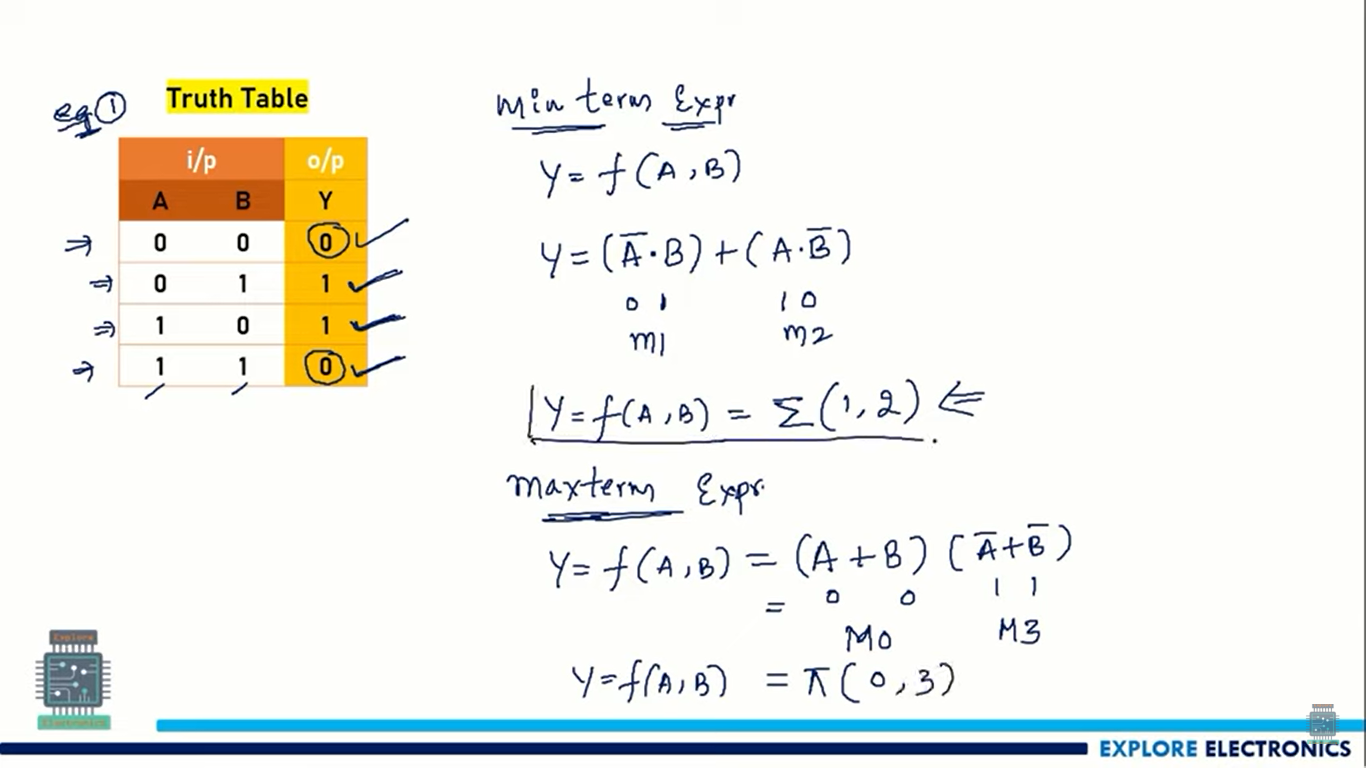 eg ①
Truth Table
i/p o/p
A B Y
⇒ 0 0 0 ✓
⇒ 0 1 1 ✓
⇒ 1 0 1 ✓
⇒ 1 1 0 ✓
Min term Expr
Y = f(A,B)
Y = (A̅·B) + (A·B̅)
0 1 1 0
m1 m2
Y = f(A,B) = Σ(1,2) ⇐
Maxterm Expr.
Y = f(A,B) = (A+B) (A̅+B̅)
= 0 0 1 1
M0 M3
Y = f(A,B) = π(0,3)
Explore
Electronics
EXPLORE ELECTRONICS